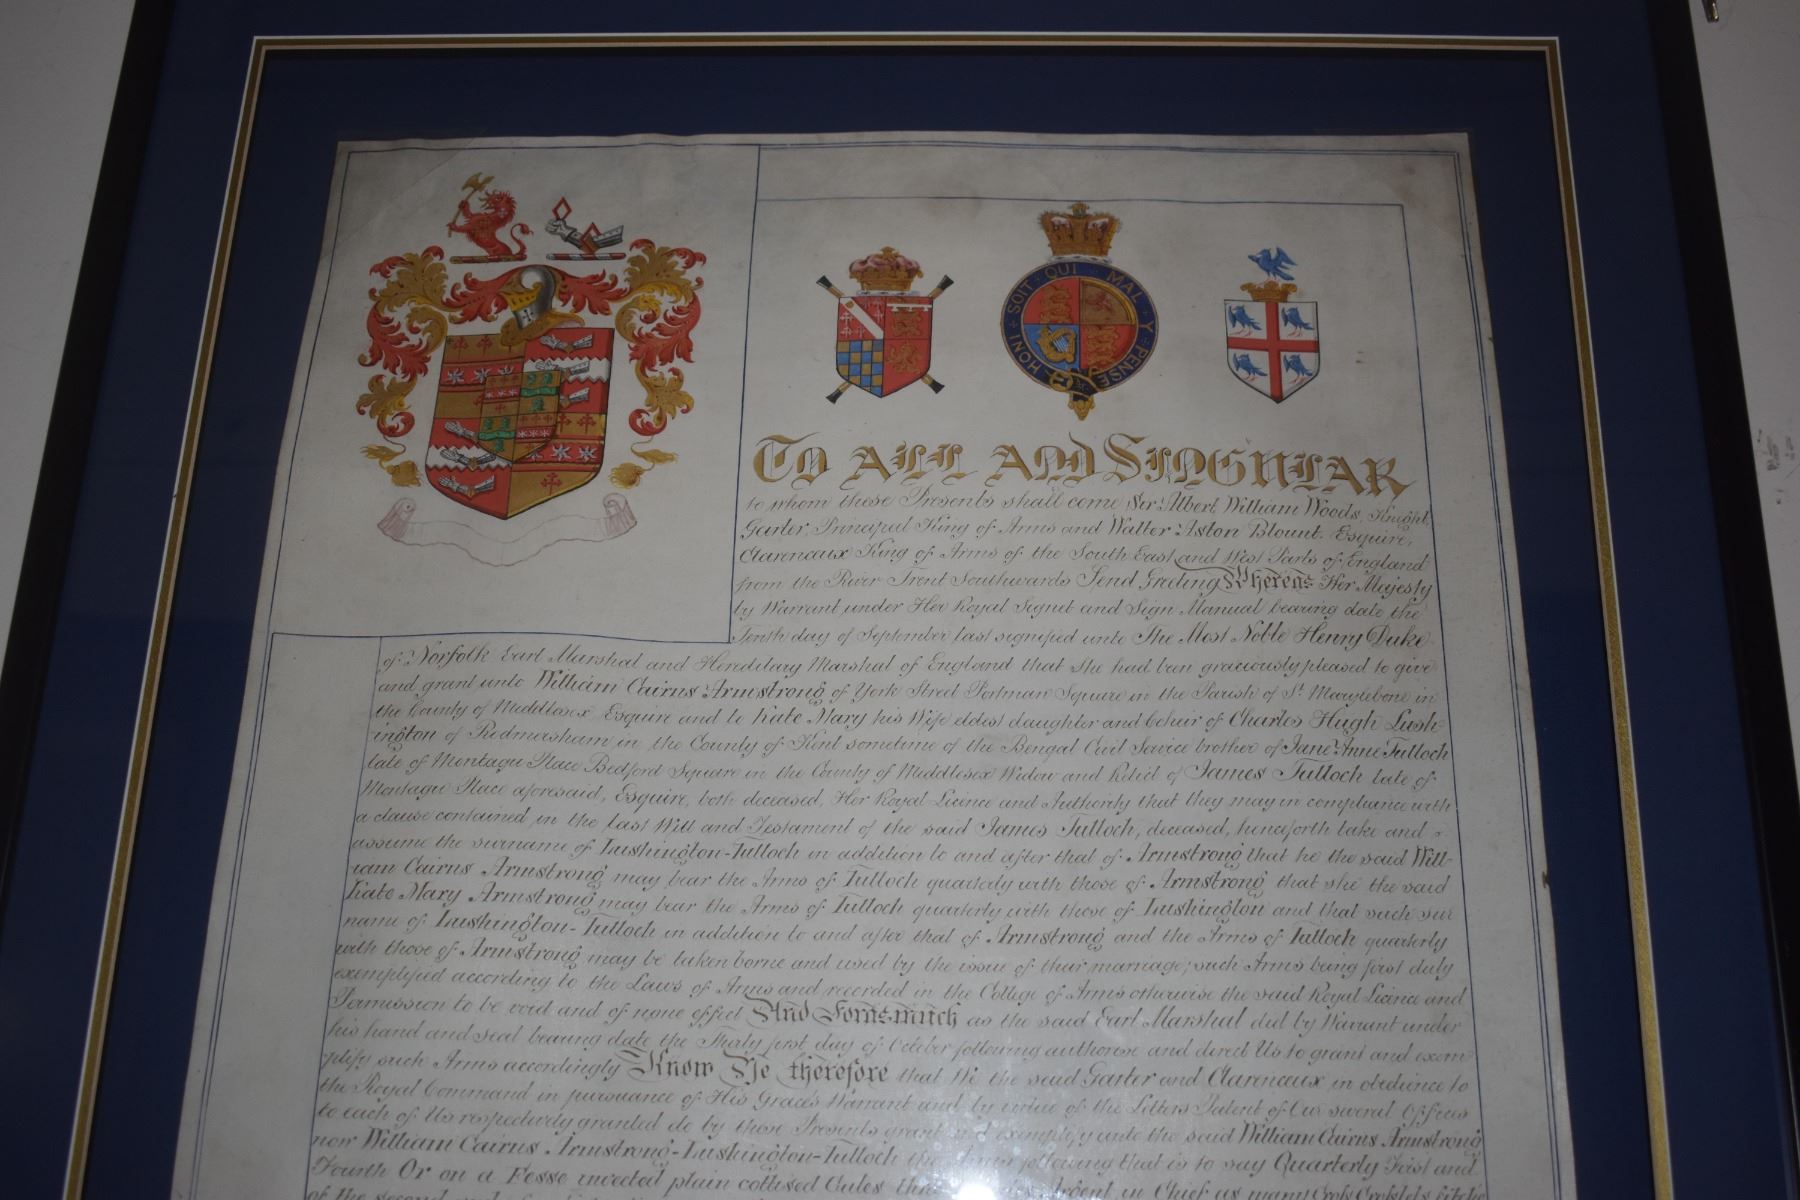 HONI · SOIT · QUI · MAL · Y · PENSE
To All And Singular
to whom these Presents shall come Sir Albert William Woods, Knight,
Garter, Principal King of Arms and Walter Aston Blount, Esquire,
Clarenceux King of Arms of the South East and West Parts of England
from the River Trent Southwards Send Greeting Whereas Her Majesty
by Warrant under Her Royal Signet and Sign Manual bearing date the
Tenth day of September last signified unto The Most Noble Henry Duke
of Norfolk Earl Marshal and Hereditary Marshal of England that She had been graciously pleased to give
and grant unto William Cairns Armstrong of York Street Portman Square in the Parish of St Marylebone in
the County of Middlesex Esquire and to Kate Mary his Wife eldest daughter and coheir of Charles Hugh Lush-
ington of Rodmersham in the County of Kent sometime of the Bengal Civil Service brother of Jane Anne Tulloch
late of Montagu Place Bedford Square in the County of Middlesex Widow and Relict of James Tulloch late of
Montagu Place aforesaid, Esquire, both deceased, Her Royal Licence and Authority that they may in compliance with
a clause contained in the last Will and Testament of the said James Tulloch, deceased, henceforth take and
assume the surname of Lushington-Tulloch in addition to and after that of Armstrong that he the said Will-
iam Cairns Armstrong may bear the Arms of Tulloch quarterly with those of Armstrong, that she the said
Kate Mary Armstrong may bear the Arms of Tulloch quarterly with those of Lushington and that such sur
name of Lushington-Tulloch in addition to and after that of Armstrong and the Arms of Tulloch quarterly
with those of Armstrong may be taken borne and used by the issue of their marriage; such Arms being first duly
exemplified according to the Laws of Arms and recorded in the College of Arms otherwise the said Royal Licence and
Permission to be void and of none effect And Forasmuch as the said Earl Marshal did by Warrant under
his hand and seal bearing date the Thirty first day of October following authorise and direct Us to grant and exem
plify such Arms accordingly Know Ye therefore that We the said Garter and Clarenceux in obedience to
the Royal Command in pursuance of His Grace's Warrant and by virtue of the Letters Patent of Our several Offices
to each of Us respectively granted do by these Presents grant and exemplify unto the said William Cairns Armstrong
now William Cairns Armstrong-Lushington-Tulloch the Arms following that is to say Quarterly First and
Fourth Or on a Fesse invected plain cotised Gules three Argent in Chief as many Cross Crosslets fitchée
of the second